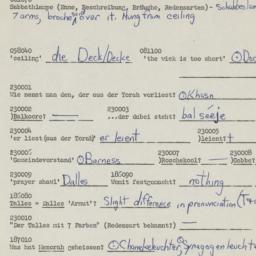 Sabbathlampe (Name, Beschreibung, Bräuche, Redensarten) - Schabbeslam
7 arms, broche said over it. Hung from ceiling
058040 081100
'ceiling' die Deck/Decke 'the wick is too short'
230001
Wie nennt man den, der aus der Torah vorliest? Khasn
230002 230003
Balkore? — ...der dabei steht?
230004 230005
'er liest (aus der Torah)' er leient leient? —
230006 230007 230008
'Gemeindevorstand' Barness Roschekool? — Gobbe?
230009 186090
'prayer shawl' Dalles Womit festgemacht? nothing
186080
Talles = Dalles 'Armut'? Slight difference in pronunciation
230010
"Der Talles mit 7 Farben" (Redensart bekannt?) —
187010
Was hat Menorah geheissen?